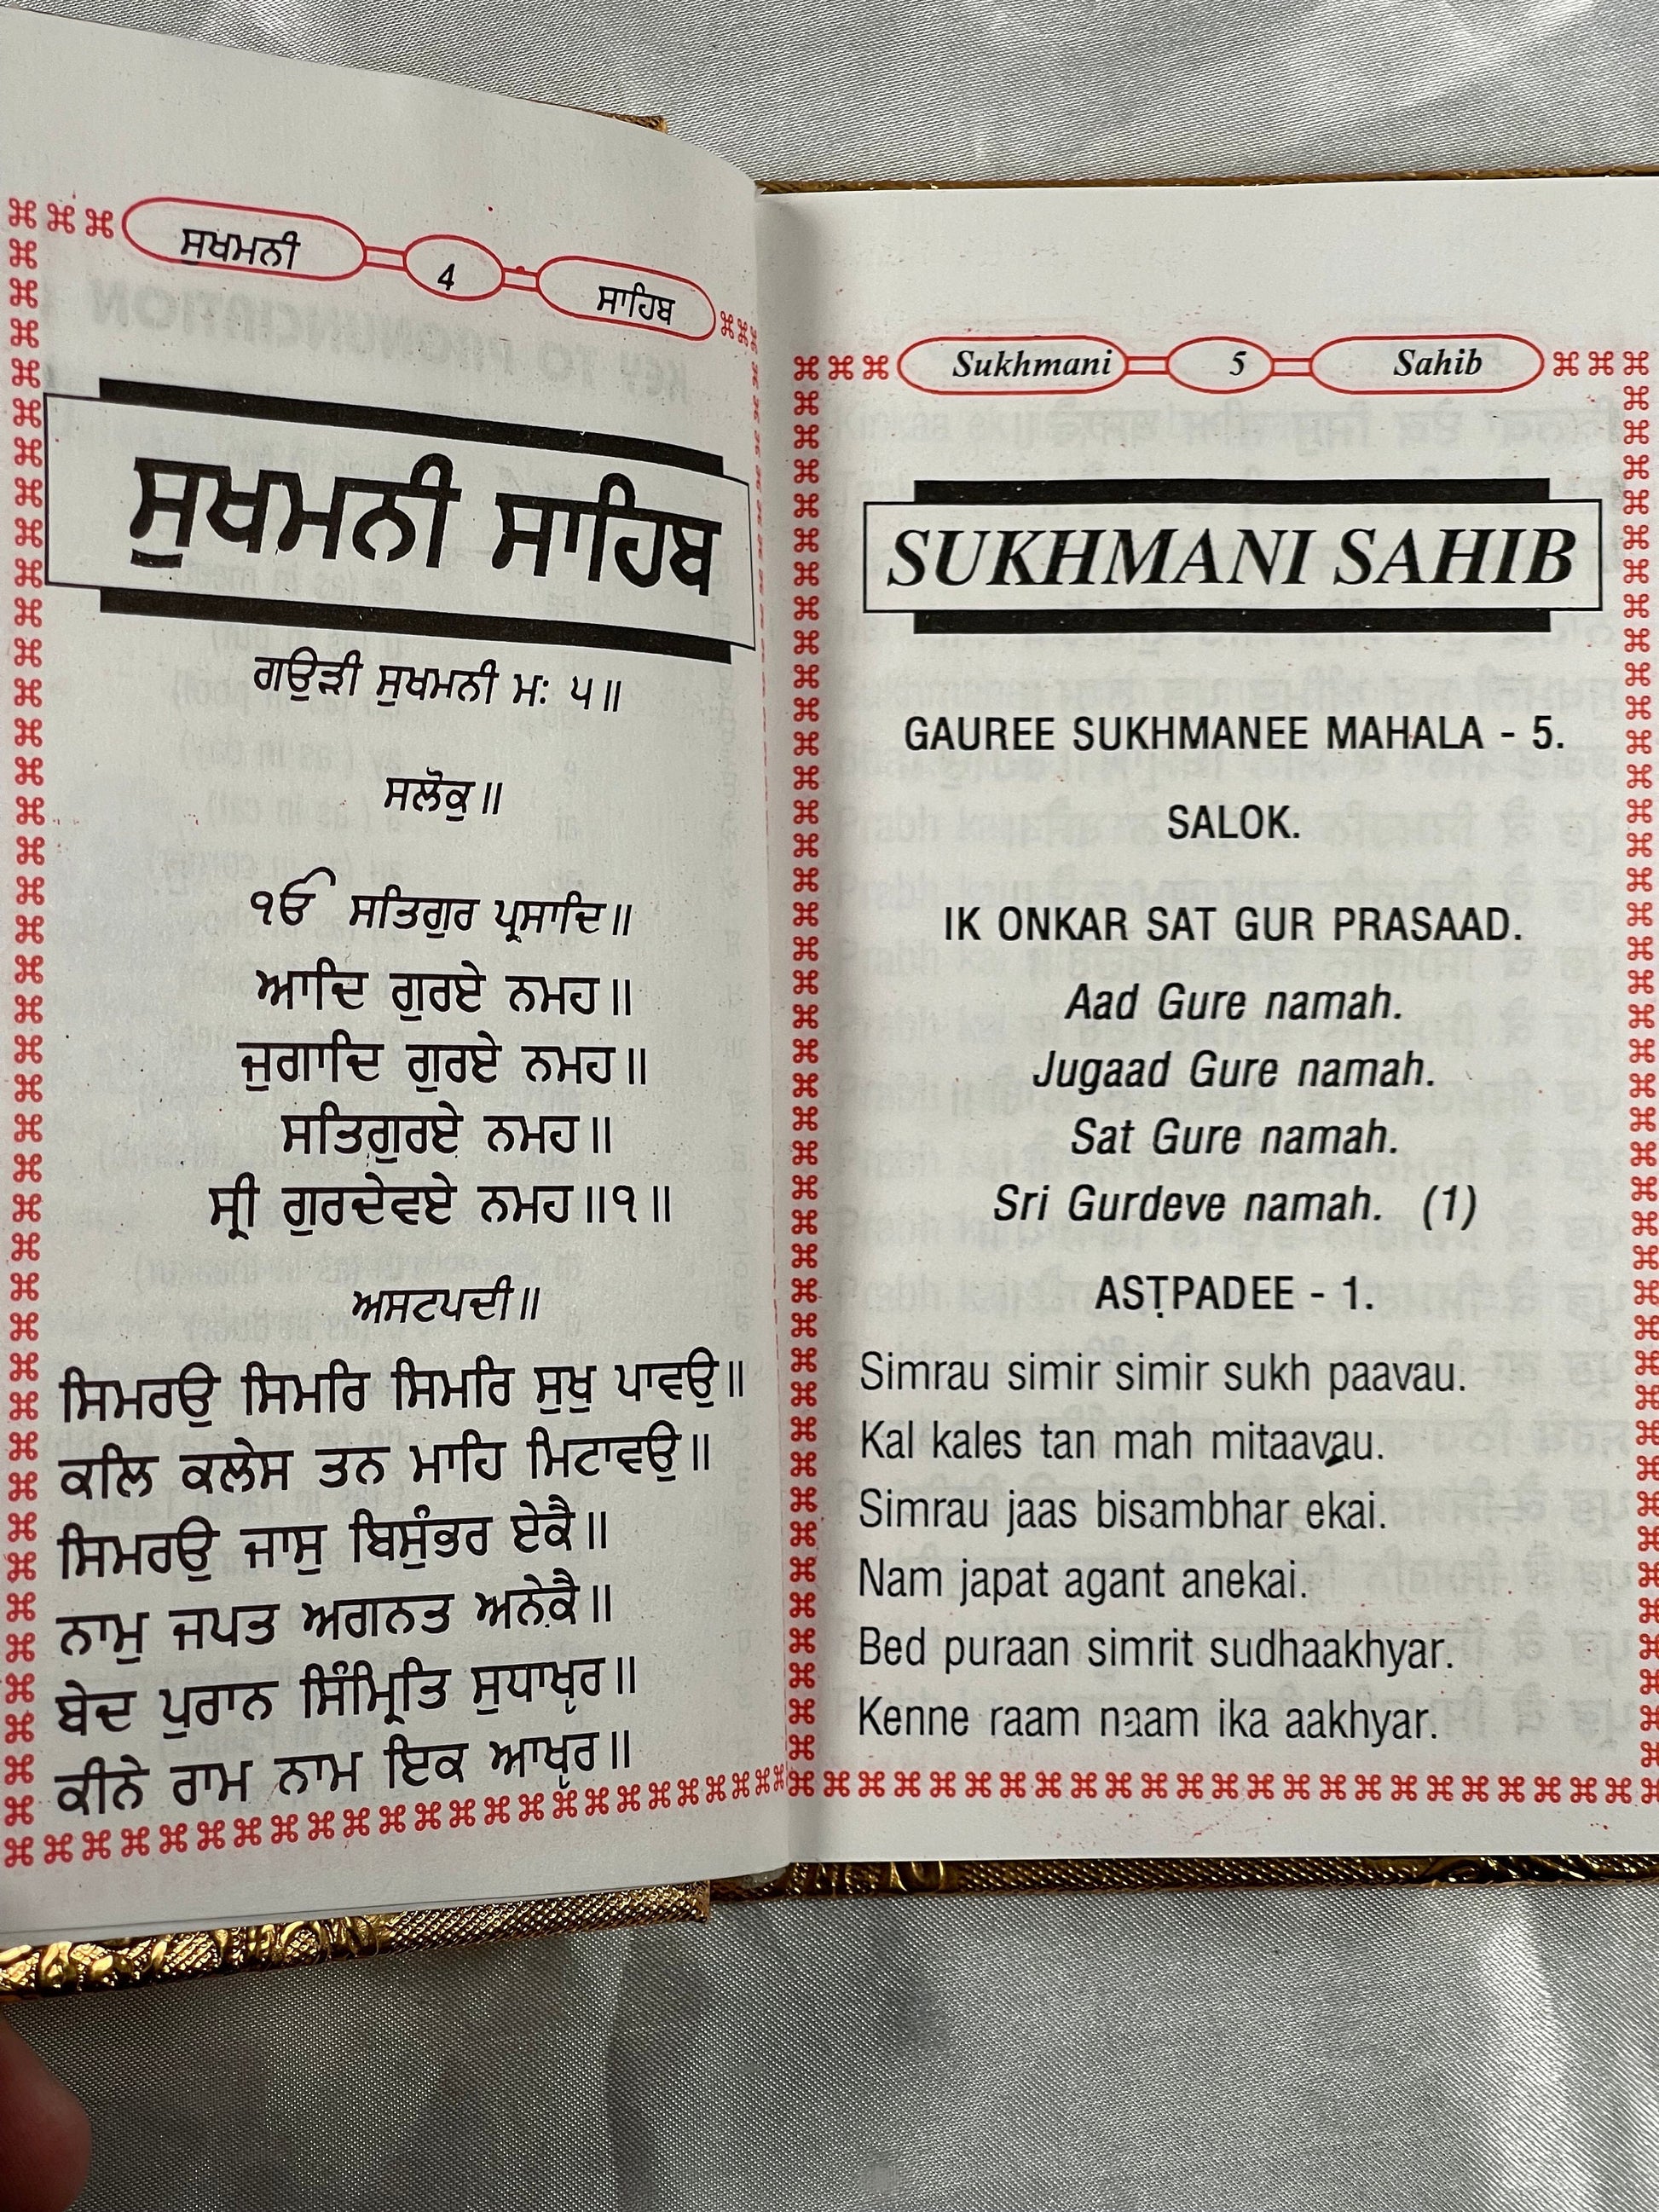 ਸੁਖਮਨੀ 4 ਸਾਹਿਬ
ਸੁਖਮਨੀ ਸਾਹਿਬ
ਗਉੜੀ ਸੁਖਮਨੀ ਮਃ ੫॥
ਸਲੋਕੁ॥
ੴ ਸਤਿਗੁਰ ਪ੍ਰਸਾਦਿ॥
ਆਦਿ ਗੁਰਏ ਨਮਹ॥
ਜੁਗਾਦਿ ਗੁਰਏ ਨਮਹ॥
ਸਤਿਗੁਰਏ ਨਮਹ॥
ਸ੍ਰੀ ਗੁਰਦੇਵਏ ਨਮਹ॥੧॥
ਅਸਟਪਦੀ॥
ਸਿਮਰਉ ਸਿਮਰਿ ਸਿਮਰਿ ਸੁਖੁ ਪਾਵਉ॥
ਕਲਿ ਕਲੇਸ ਤਨ ਮਾਹਿ ਮਿਟਾਵਉ॥
ਸਿਮਰਉ ਜਾਸੁ ਬਿਸੁੰਭਰ ਏਕੈ॥
ਨਾਮੁ ਜਪਤ ਅਗਨਤ ਅਨੇਕੈ॥
ਬੇਦ ਪੁਰਾਨ ਸਿੰਮ੍ਰਿਤਿ ਸੁਧਾਖੵਰ॥
ਕੀਨੇ ਰਾਮ ਨਾਮ ਇਕ ਆਖੵਰ॥
Sukhmani 5 Sahib
SUKHMANI SAHIB
GAUREE SUKHMANEE MAHALA - 5.
SALOK.
IK ONKAR SAT GUR PRASAAD.
Aad Gure namah.
Jugaad Gure namah.
Sat Gure namah.
Sri Gurdeve namah. (1)
ASṬPADEE - 1.
Simrau simir simir sukh paavau.
Kal kales tan mah mitaavau.
Simrau jaas bisambhar ekai.
Nam japat agant anekai.
Bed puraan simrit sudhaakhyar.
Kenne raam naam ika aakhyar.